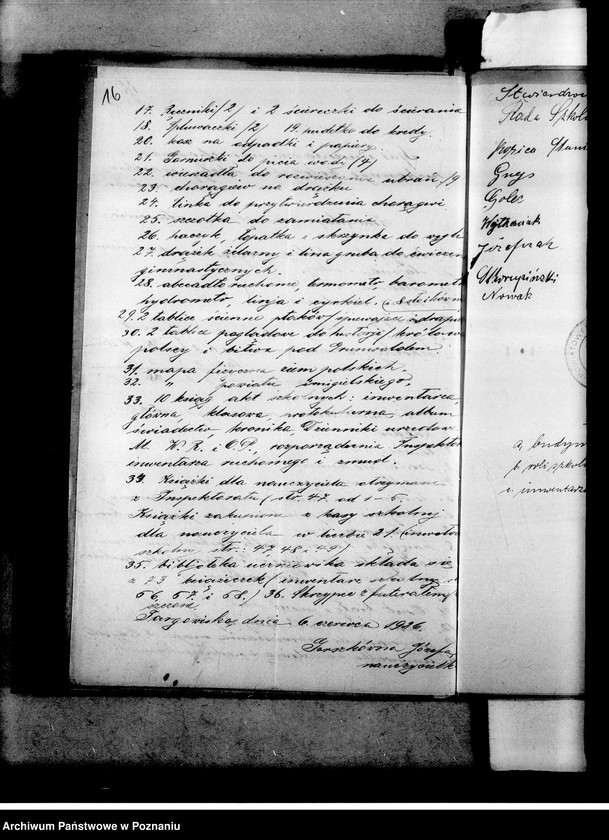 16
17. Ręczniki /2/ i 2 ściereczki do ścierania
18. Spluwaczki /2/ 19. pudełko do kredy.
20. kosz na odpadki i papiery.
21. Garnuszki do picia wody /4/
22. wieszadła do ubrań /4
23. chorągiew na drążku
24. linka do przytwierdzenia chorągwi
25. szczotka do zamiatania
26. haczyk, łopatka i skrzynka do węgla
27. drążek żelazny i lina gruba do ćwiczeń
gimnastycznych.
28. abecadło ruchome, termometr, barometr
hydrometr, linja i cyrkiel.
29. 2 tablice ścienne ptaków /śpiewające i drap
30. 2 tablice poglądowe do historji / królowie
polscy i bitwa pod Grunwaldem.
31. mapa fizyczna ziem polskich,
32. " powiatu Śmigielskiego,
33. 10 ksiąg akt szkolnych: inwentarza,
główna, klasowa, protokularna, album
świadectw, kronika, Dzienniki urzędowe
M. W. R. i O. P., rozporządzenia Inspektor
inwentarza ruchomego i
34. Książki dla nauczyciela otrzymane
z Inspektoratu (str. 47. od 1-5.
Książki zakupione z kasy szkolnej
dla nauczyciela w liczbie 21.
szkolny str.: 47, 48 i 49)
35. biblioteka uczniowska składa się
z 73 książeczek / inwentarz szkolny s
56, 57, i 58./ 36. Skrzypce z futerałem
Targowisko, dnia 6. czerwca 1926.
Józefa,
nauczycielk
Stwierdzo
Rada Szkoln
Gryś
Golec
Józefczak
Nowak
a, budyn
b, roli szkoln
c, inwentarza
Archiwum Państwowe w Poznaniu